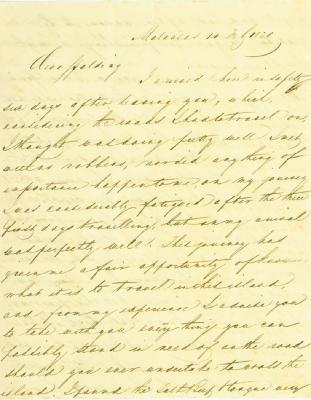 Dear
I arrived here in safety
six days after leaving you, which,
considering the roads I had to travel on,
I thought was doing pretty well. I met
with no robbers, nor did any thing of
importance happen to me on my journey
I was considerably fatigued after the three
first days travelling, but on my arrival
was perfectly well. This journey has
given me a fair opportunity of
what it is to travel in this island,
and from my experience I advise you
to take with you every thing you can
possibly stand in need of on the road
should you ever undertake to cross the
island. I found the Salt Beef & Tongue very